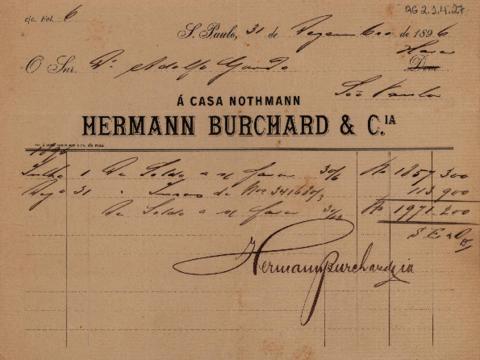 c/c Fol. 6
AG 2.1.4.27
S. Paulo, 31 de Dezembro de 1896
O Snr. Dr. Adolfo Gordo
São Paulo
Á CASA NOTHMANN
HERMANN BURCHARD & C.IA
1896
Julho 1 De Saldo a n/ favor 30/6 Rs 1857.300
Dezº 31 " Juros de 113.900
De Saldo a n/ favor 31/12 Rs 1971.200
S. E. & O.
Hermann Burchard & Cia